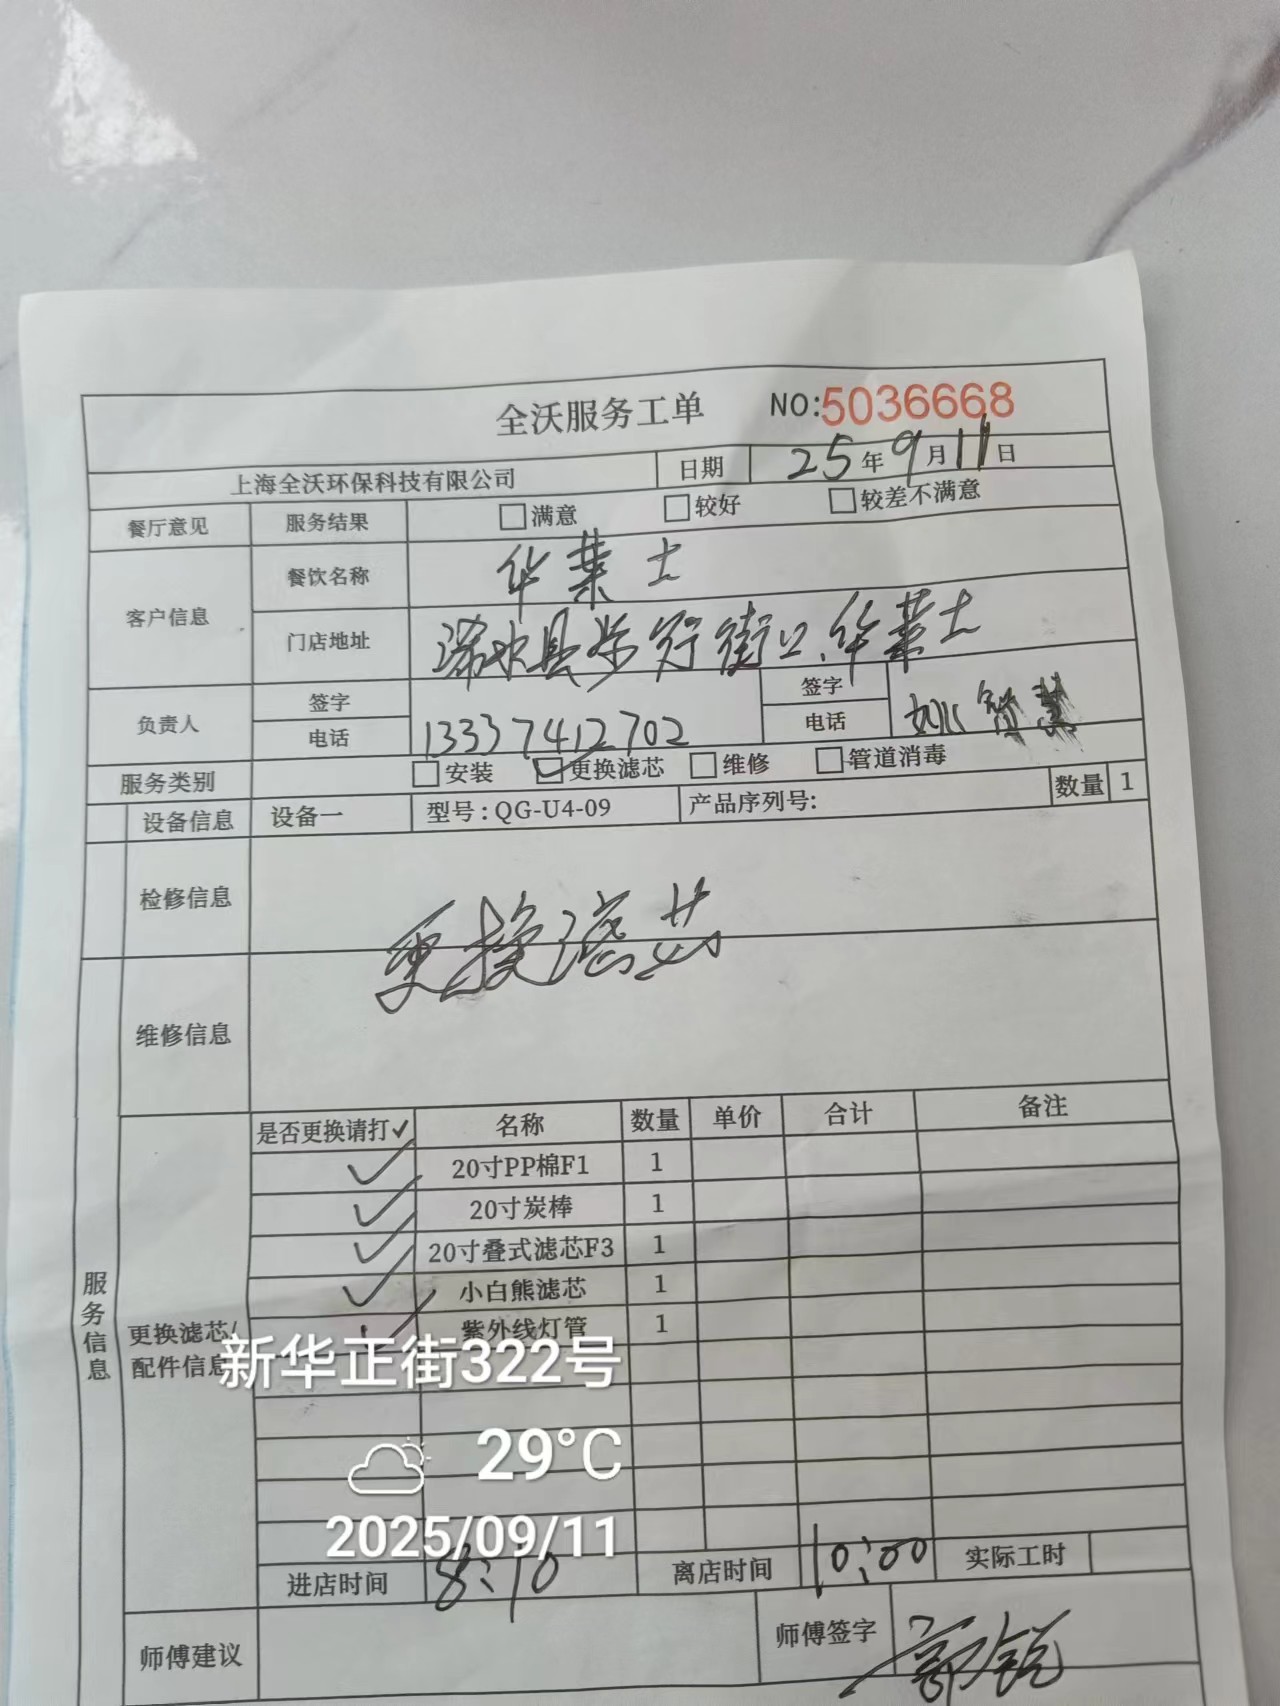 全沃服务工单 NO:5036668
上海全沃环保科技有限公司 日期 25年9月11日
餐厅意见 服务结果 满意 较好 较差不满意
客户信息 餐饮名称 华莱士
门店地址 浠水县步行街口.华莱士
负责人 签字 签字
电话 13337412702 电话
服务类别 安装 更换滤芯 维修 管道消毒
设备信息 设备一 型号:QG-U4-09 产品序列号: 数量 1
检修信息
更换滤芯
维修信息
服务信息
更换滤芯/配件信息
是否更换请打✓ 名称 数量 单价 合计 备注
✓ 20寸PP棉F1 1
✓ 20寸炭棒 1
✓ 20寸叠式滤芯F3 1
✓ 小白熊滤芯 1
✓ 紫外线灯管 1
新华正街322号
29°C
2025/09/11
进店时间 8:10 离店时间 10:00 实际工时
师傅建议 师傅签字